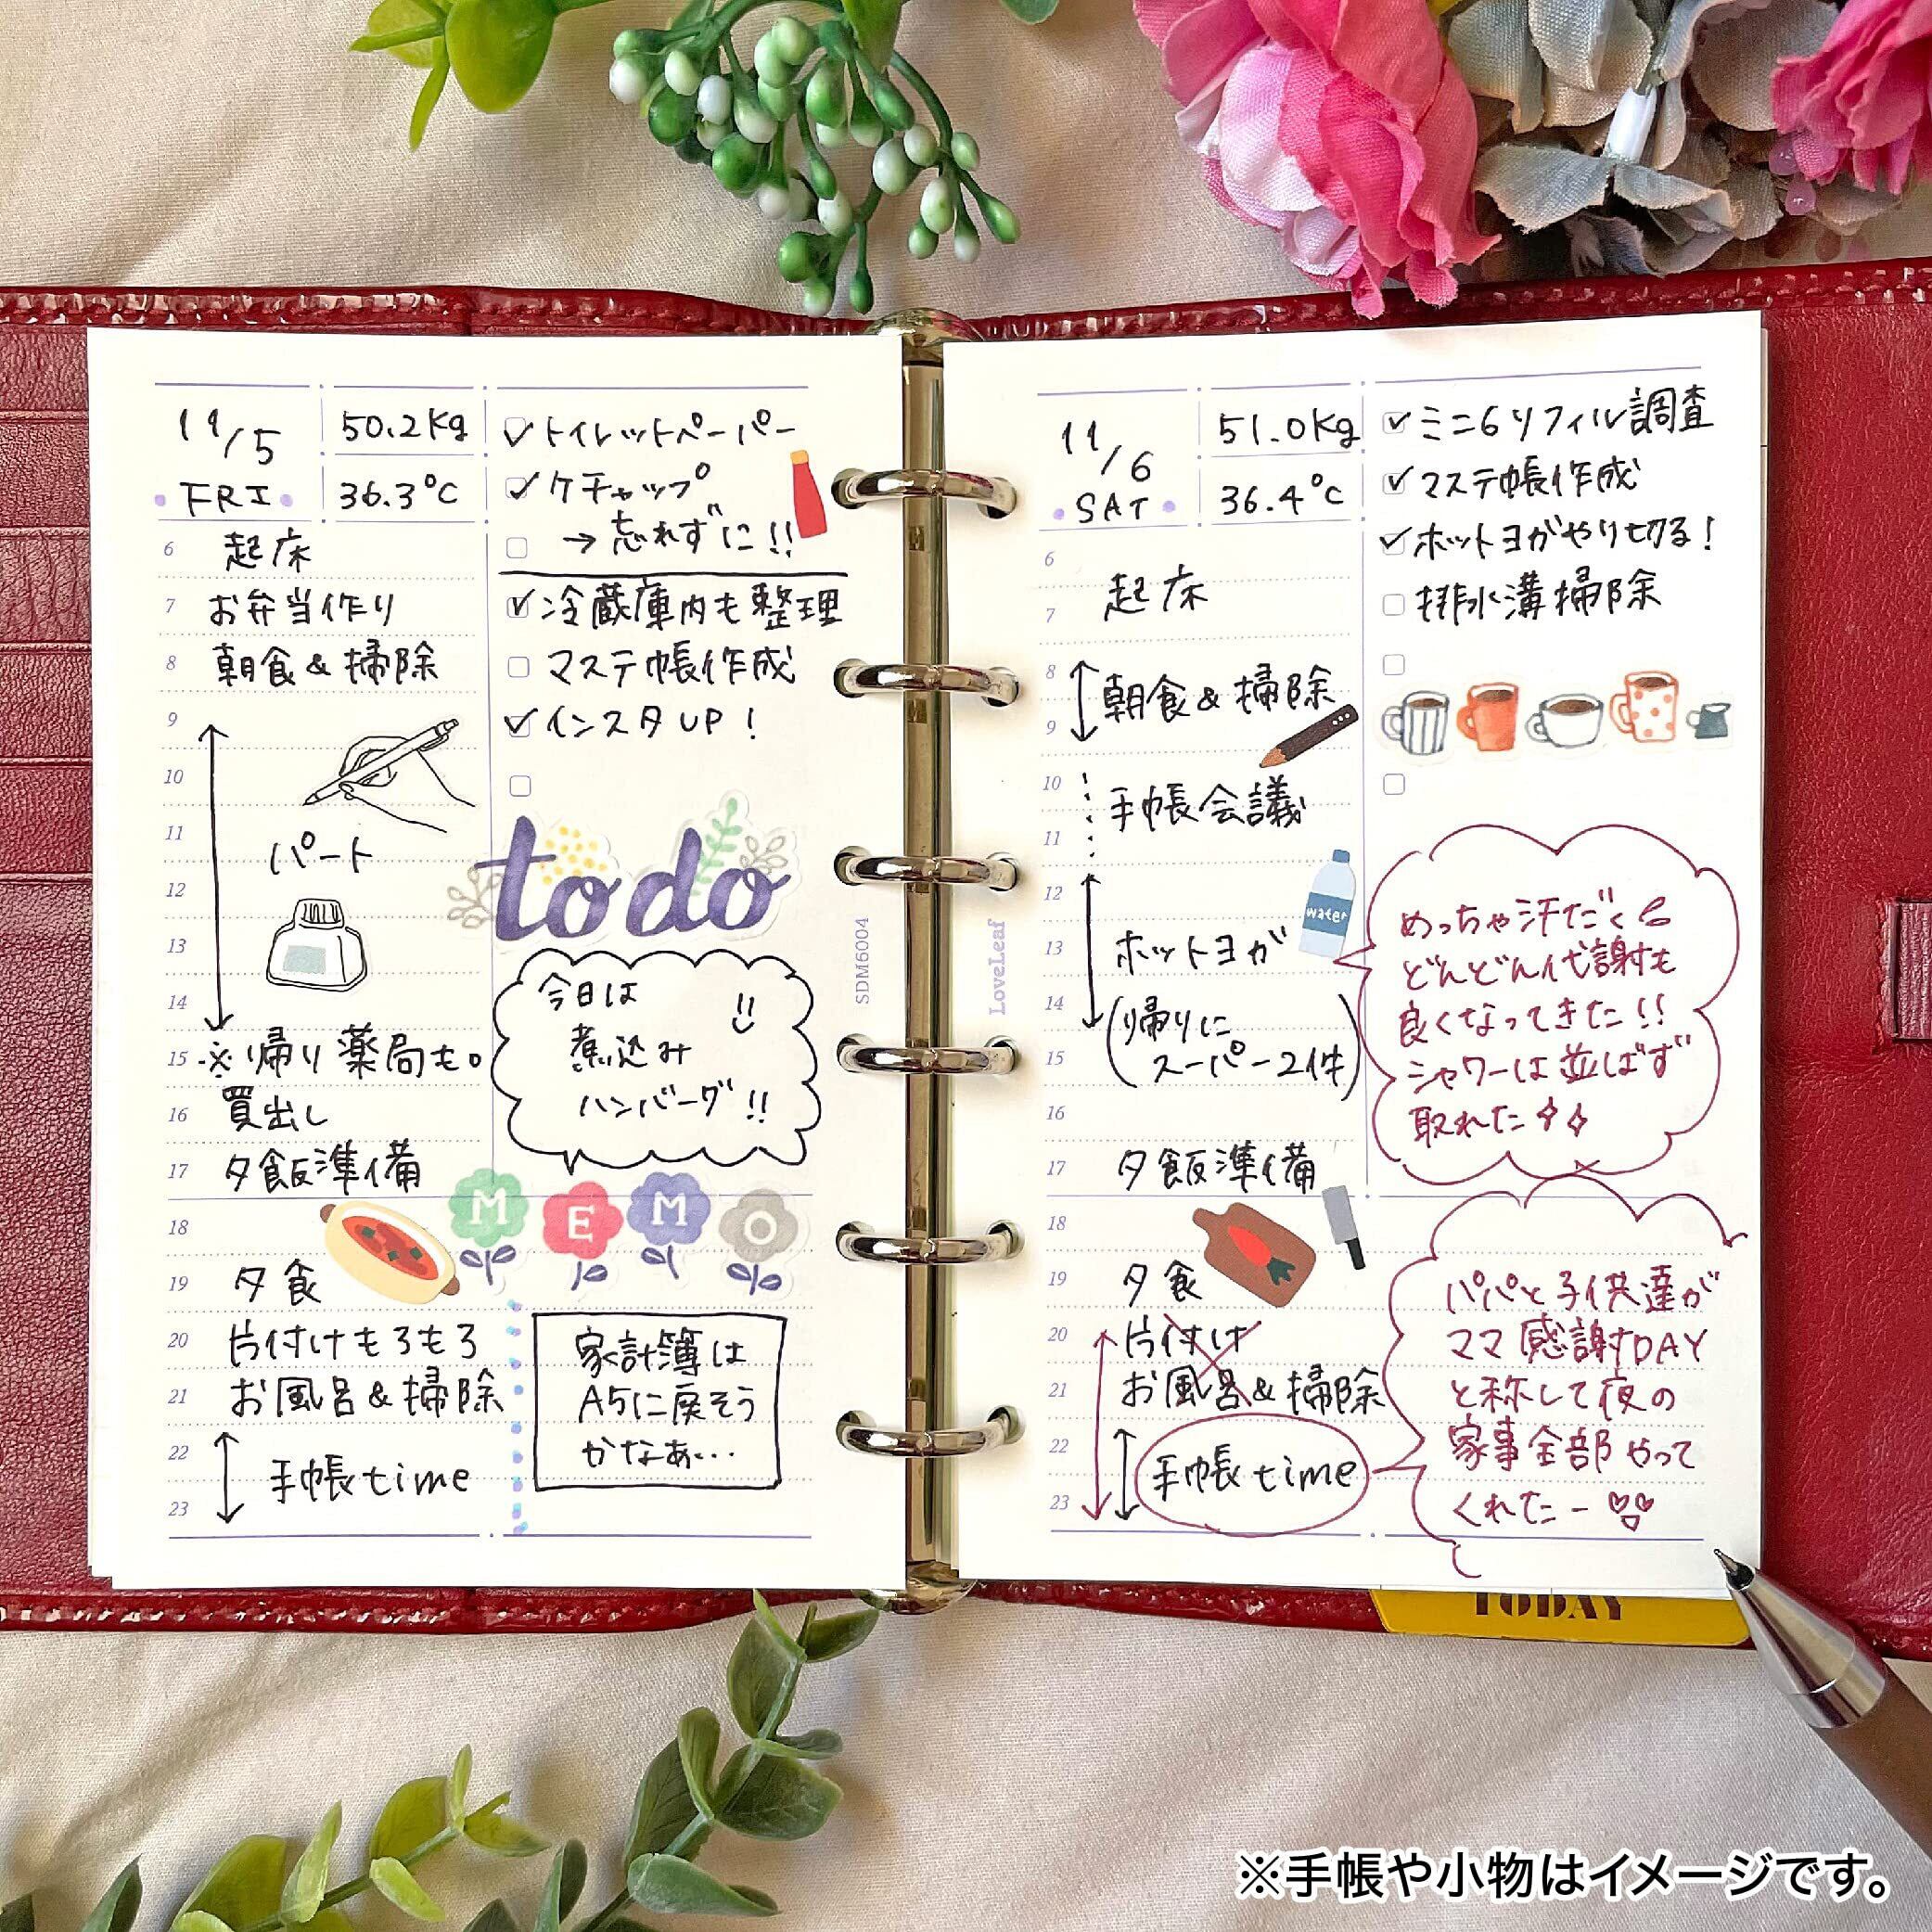 11/5
FRI
50.2Kg
36.3℃
トイレットペーパー
ケチャップ
→忘れずに!!
冷蔵庫内も整理
マステ帳作成
インスタUP!
6 起床
7 お弁当作り
8 朝食&掃除
9
10
11 パート
12
13
14
15 ※帰り薬局も。
16 買出し
17 夕飯準備
18
19 夕食
20 片付けもろもろ
21 お風呂&掃除
22 手帳time
23
todo
今日は
煮込み
ハンバーグ!!
MEMO
家計簿は
A5に戻そう
かなぁ…
SDM6004
LoveLeaf
11/6
SAT
51.0Kg
36.4℃
ミニ6リフィル調査
マステ帳作成
ホットヨガやり切る!
排水溝掃除
6
7 起床
8 朝食&掃除
9
10 手帳会議
11
12
13 ホットヨガ
14 (帰りに
15 スーパー2件)
16
17 夕飯準備
18
19 夕食
20 片付け
21 お風呂&掃除
22 手帳time
23
water
めっちゃ汗だく
どんどん代謝も
良くなってきた!!
シャワーは並ばず
取れた
パパと子供達が
ママ感謝DAY
と称して夜の
家事全部やって
くれたー
TODAY
※手帳や小物はイメージです。